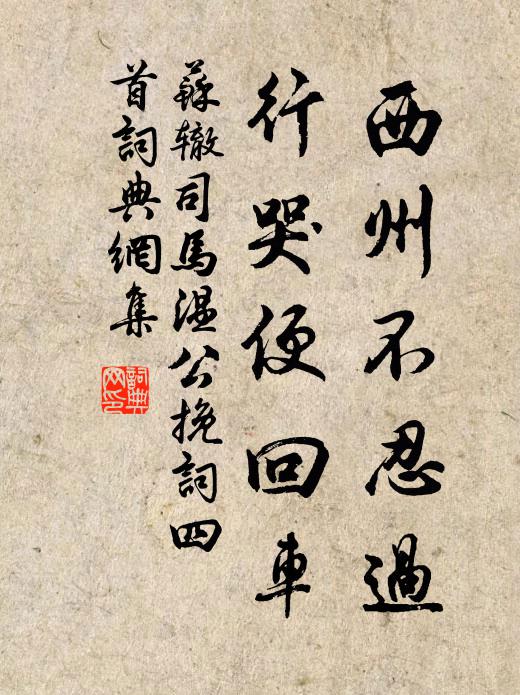 西州不忍過
行哭便回車
蘇辙司馬温公挽詞四
首詞典網集
詞典
网印